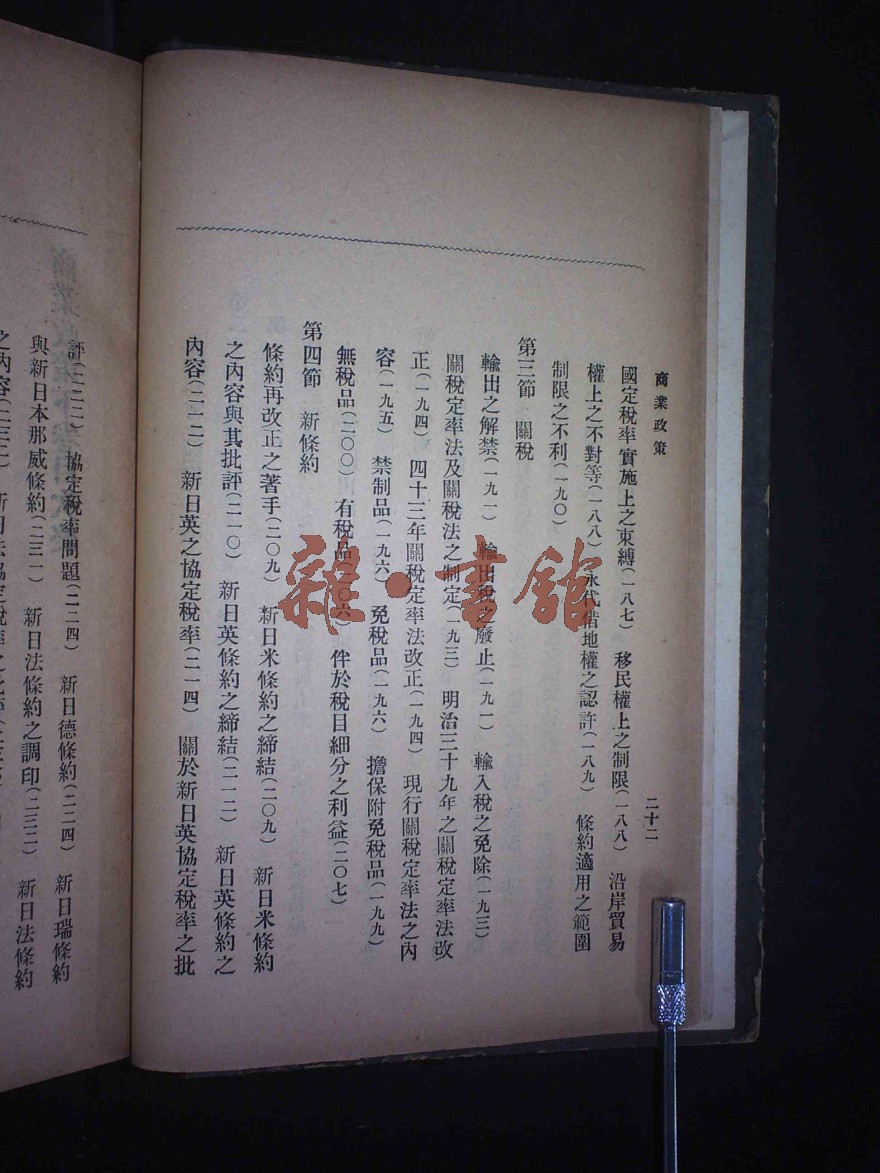 商業政策
二十二
國定稅率實施上之束縛(一八七) 移民權上之制限(一八八) 沿岸貿易
權上之不對等(一八八) 永代借地權之認許(一八九) 條約適用之範圍
制限之不利(一九〇)
第三節 關稅
輸出之解禁(一九一) 輸出稅之廢止(一九一) 輸入稅之免除(一九三)
關稅定率法及關稅法之制定(一九三) 明治三十九年之關稅定率法改
正(一九四) 四十三年關稅定率法改正(一九四) 現行關稅定率法之內
容(一九五) 禁制品(一九六) 免稅品(一九六) 擔保附免稅品(一九九)
無稅品(二〇〇) 有稅品(二〇六) 伴於稅目細分之利益(二〇七)
第四節 新條約
條約再改正之著手(二〇九) 新日米條約之締結(二〇九) 新日米條約
之內容與其批評(二一〇) 新日英條約之締結(二一二) 新日英條約之
內容(二一二) 新日英之協定稅率(二一四) 關於新日英協定稅率之批
評(二二二) 協定稅率問題(二二四) 新日德條約(二二四) 新日瑞條約
與新日本那威條約(二三一) 新日法條約之調印(二三二) 新日法條約
之內容(二三二) 新日法協定稅率之批評
雜·書館